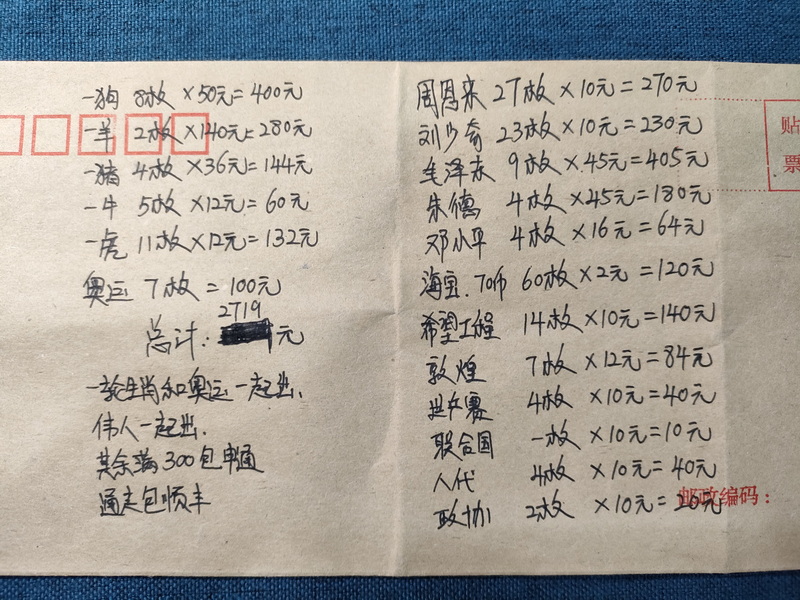 一狗 8枚 ×50元=400元
一羊 2枚×140元=280元
一猪 4枚×36元=144元
一牛 5枚×12元=60元
一虎 11枚×12元=132元
奥运 7枚 =100元
2719
总计: 元
一轮生肖和奥运一起出.
伟人一起出.
其余满300包申通
通走包顺丰
周恩来 27枚×10元=270元
刘少奇 23枚×10元=230元
毛泽东 9枚×45元=405元
朱德 4枚×45元=180元
邓小平 4枚×16元=64元
海宝.70师 60枚×2元=120元
希望工程 14枚×10元=140元
敦煌 7枚×12元=84元
世乒赛 4枚×10元=40元
联合国 一枚×10元=10元
人代 4枚×10元=40元
政协 2枚×10元=20元
贴
票
邮政编码: